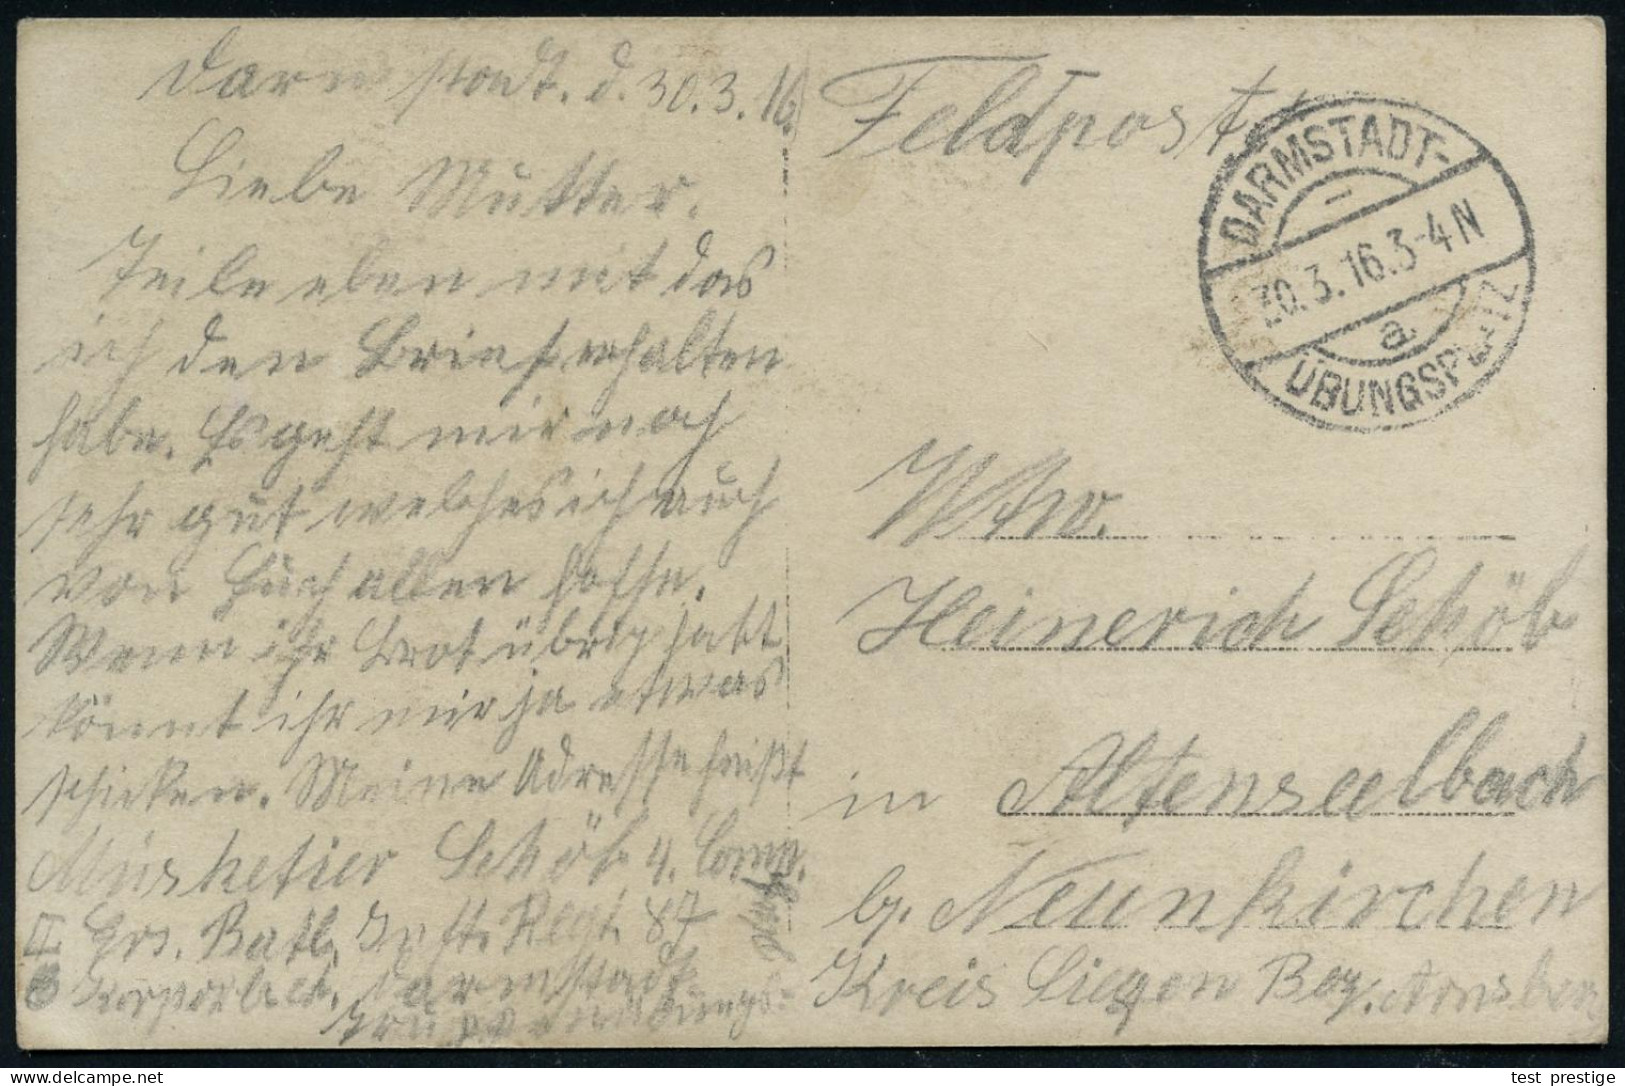 Darmstadt. d. 30.3.16.
Liebe Mutter.
Teile eben mit das
ich den Brief erhalten
habe. Es geht mir noch
sehr gut welches ich auch
von Euch allen hoffe.
Wenn ihr Brot übrig habt
könnt ihr mir ja etwas
schicken. Meine Adresse heißt
Musketier Schöb 4. Comp.
II Ers. Batl. Inft. Regt. 87
Korporlsch. Darmstadt
Truppenübungs-
platz
Feldpost
DARMSTADT-
30.3.16.3-4N
a
ÜBUNGSPLATZ
Wtw.
Heinerich Schöb
in Altenseelbach
b. Neunkirchen
Kreis Siegen Bez. Arnsberg
test prestige